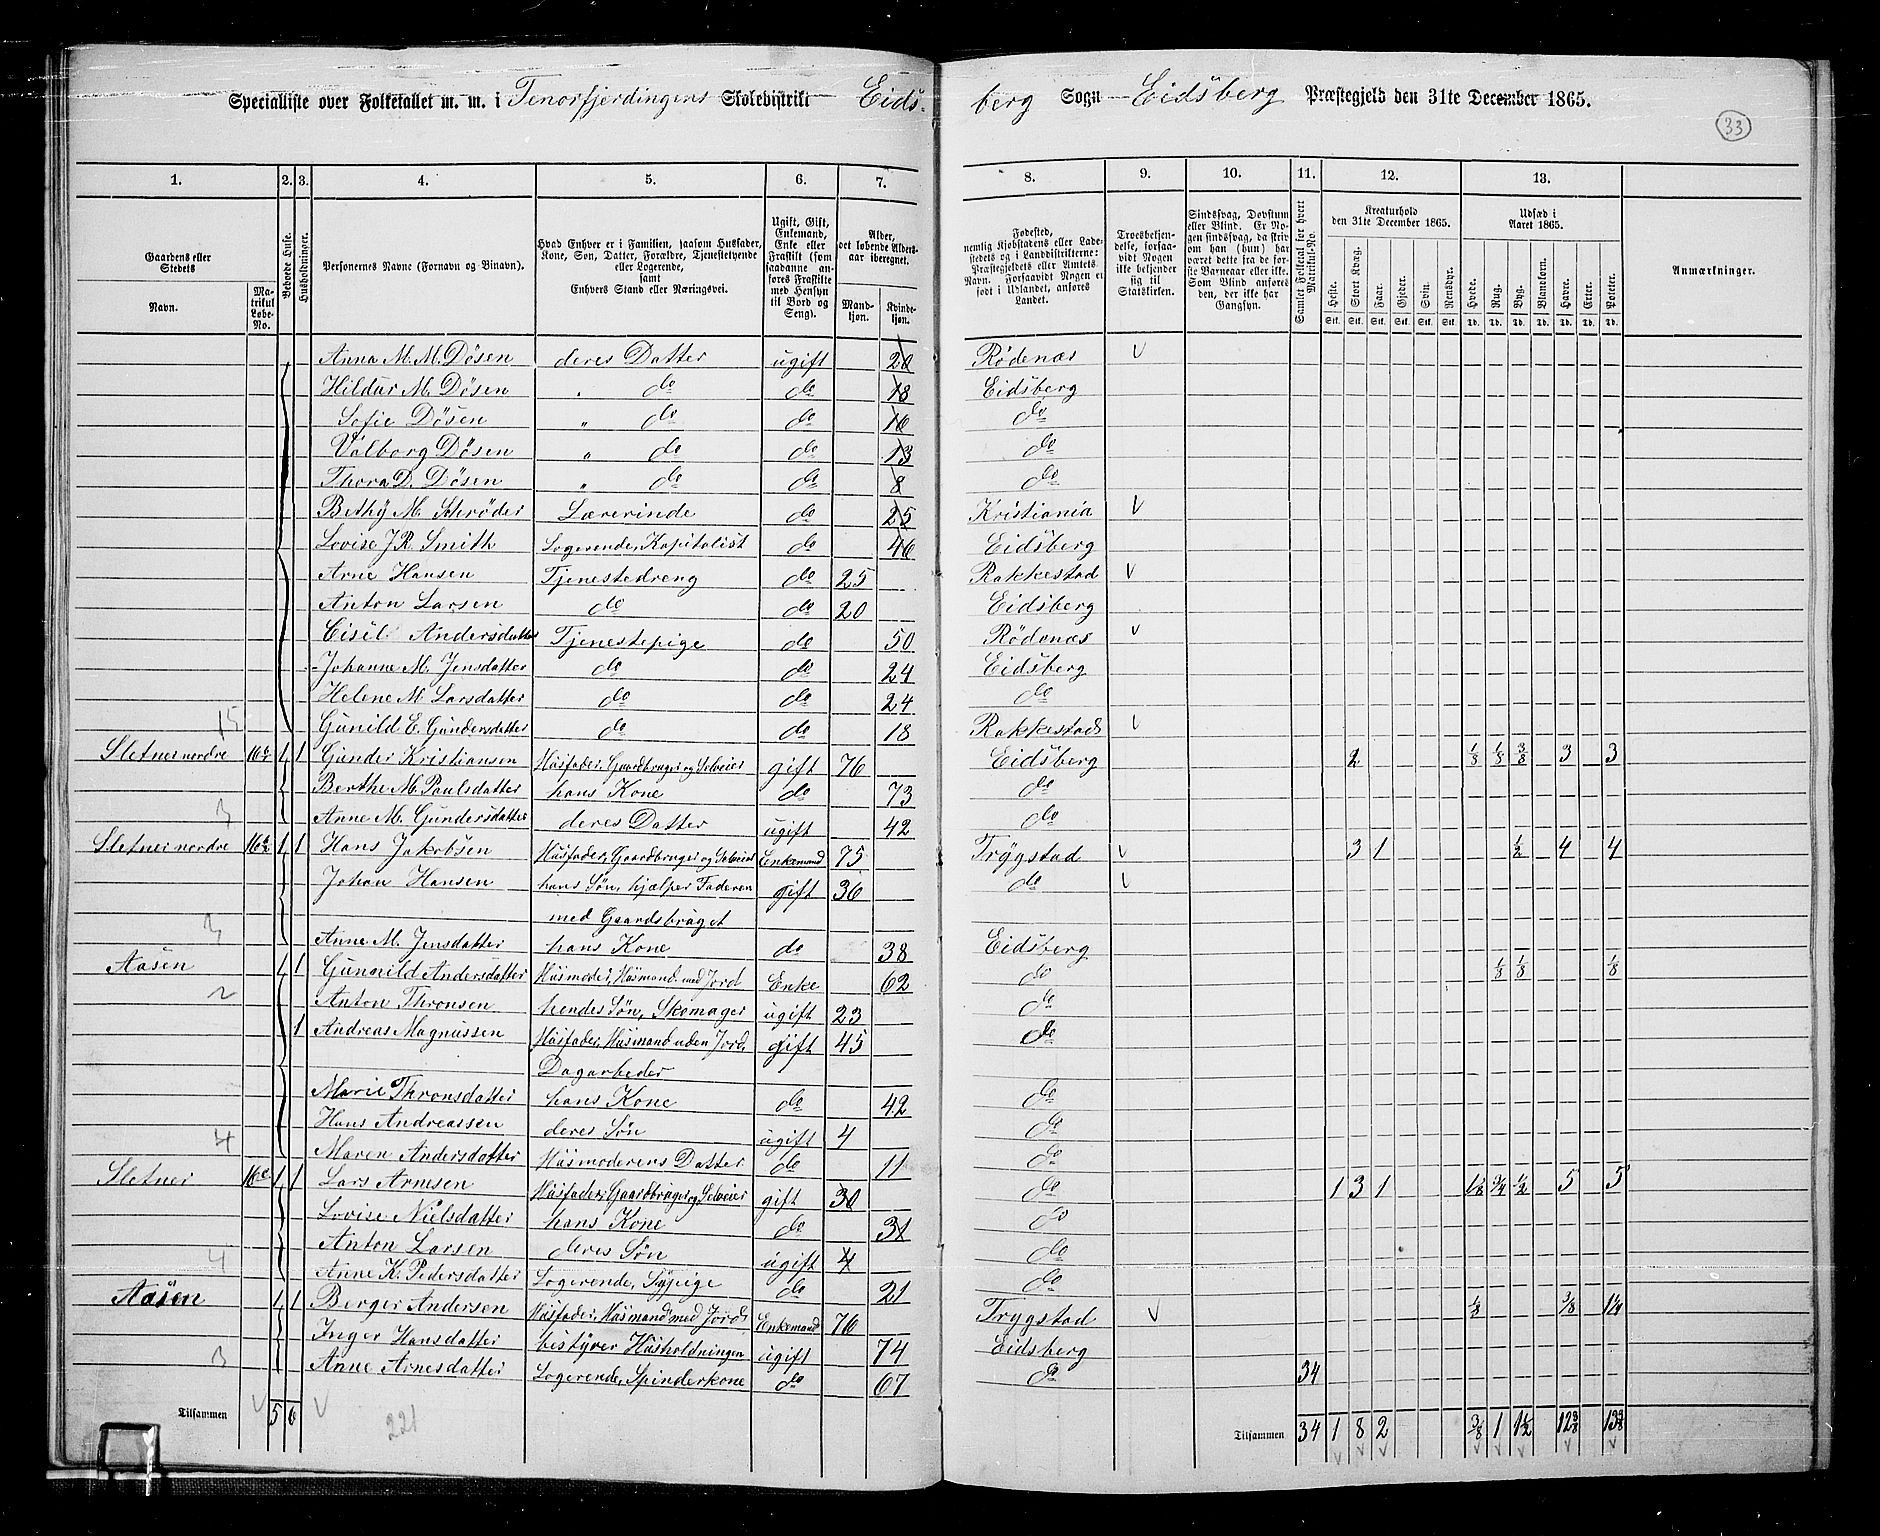 Specialliste over Folketallet m. m. i Tenorfjerdingens Skoledistrikt Eids-
berg Sogn Eidsberg Præstegjeld den 31te December 1865.
33
1. 2. 3. 4. 5. 6. 7. 8. 9. 10. 11. 12. 13.
Gaardens eller Stedets
Navn. Matrikul Løbe-No.
Beboede Huse.
Husholdninger.
Personernes Navne (Fornavn og Binavn).
Hvad Enhver er i Familien, saasom Husfader, Kone, Søn, Datter, Forældre, Tjenestetyende eller Logerende, samt Enhvers Stand eller Næringsvei.
Ugift, Gift, Enkemand, Enke eller Fraskilt (som saadanne anføres Fraskilte med Hensyn til Bord og Seng).
Alder, det løbende Aldersaar iberegnet.
Mandkjøn. Kvindekjøn.
Fødested, nemlig Kjøbstadens eller Ladestedets eller i Landdistrikterne: Præstegjeldets eller Amtets Navn. Forsaavidt Nogen er født i Udlandet, anføres Landet.
Troesbekjendelse, forsaavidt Nogen ikke bekjender sig til Statskirken.
Sindssvag, Døvstum eller Blind. Er Nogen sindssvag, da skriv om han (hun) har været dette fra de første Barneaar eller ikke. Som Blind anføres den, der ikke har Gangsyn.
Samlet Folketal for hvert Matrikul-No.
Kreaturhold den 31te December 1865.
Heste. Stort Kvæg. Faar. Gjeder. Svin. Rensdyr.
Stk. Stk. Stk. Stk. Stk. Stk.
Udsæd i Aaret 1865.
Hvede. Rug. Byg. Blandkorn. Havre. Erter. Poteter.
Td. Td. Td. Td. Td. Td. Td.
Anmærkninger.
Anna M. M. Døsen deres Datter ugift 20 Rødenæs
Hildur M. Døsen do do 18 Eidsberg
Sofie Døsen " do do 16 do
Valborg Døsen " do do 13 do
Thora D. Døsen " do do 8 do
Bethy M. Schrøder Lærerinde do 25 Kristiania
Lovise J. R. Smith Logerende, Kapitalist do 46 Eidsberg
Arne Hansen Tjenestedreng do 25 Rakkestad
Anton Larsen do do 20 Eidsberg
Andersdatter Tjenestepige do 50 Rødenæs
Johanne M. Jensdatter do do 24 Eidsberg
Helene M. Larsdatter do do 24 do
15 Gunild E. Gundersdatter do do 18 Rakkestad
Sletner nordre 1 1 Gunder Kristiansen Husfader, Gaardbruger og Selveier gift 76 Eidsberg 2 1/8 1/8 3/8 3 3
Berthe M. Paulsdatter hans Kone do 73 do
3 Anne M. Gundersdatter deres Datter ugift 42 do
Sletner nordre 1 1 Hans Jakobsen Husfader, Gaardbruger og Selveier Enkemand 75 Trygstad 3 1 1/2 4 4
Johan Hansen hans Søn, hjælper Faderen gift 36 do
med Gaardsbruget
3 Anne M. Jensdatter hans Kone do 38 Eidsberg
Aasen 1 1 Gunnild Andersdatter Husmoder, Husmand med Jord Enke 62 do 1/8 1/8 1/8
2 Anton Thronsen hendes Søn, Skomager ugift 23 do
1 Andreas Magnussen Husfader, Husmand uden Jord, gift 45 do
Dagarbeder
Marie Thronsdatter hans Kone do 42 do
Hans Andreassen deres Søn ugift 4 do
4 Maren Andersdatter Husmoderens Datter do 11 do
Sletner 1 1 Lars Arnesen Husfader, Gaardbruger og Selveier gift 30 do 1 3 1 1/8 3/4 1/2 5 5
Lovise Nielsdatter hans Kone do 31 do
Anton Larsen deres Søn ugift 4 do
4 Anne K. Pedersdatter Logerende, Sypige do 21 do
Aasen 1 1 Berger Andersen Husfader, Husmand med Jord Enkemand 76 Trygstad 1/8 3/8
Inger Hansdatter bestyrer Husholdningen ugift 74 Eidsberg
3 Anne Arnesdatter Logerende, Spinderkone do 67 do 34
Tilsammen 5 6
221
Tilsammen 34 1 8 2 3/8 1 1 1/2 12 3/8 13 3/8